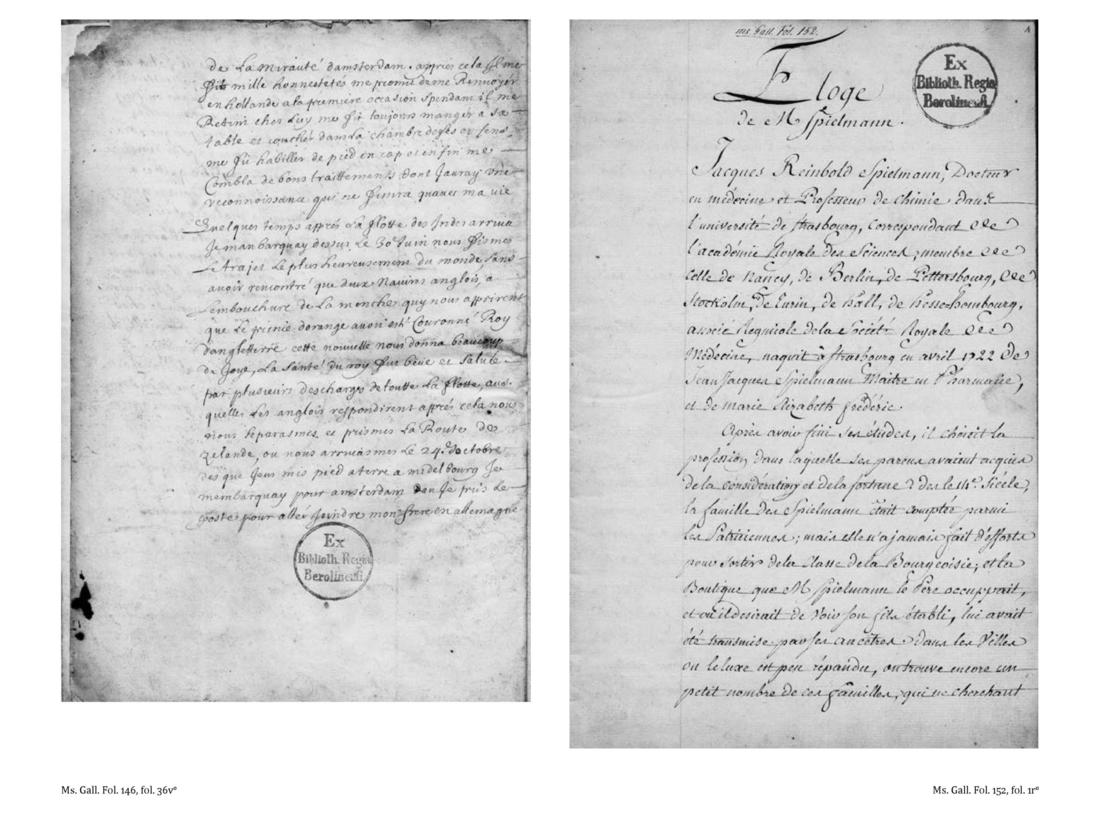 de La Mirauté damsterdam. apprés cela Il me
fit mille honnestetés me promit de me Renvoyer
en hollande a la premiere occasion spendam il me
Retint chez Luy me fit toujours manger a sa
table et coucher dans la chambre de ses
me fit habiller de pied en cap et enfin me
Combla de bons traittements dont Jauray une
reconnoissance qui ne finira quavec ma vie
Quelques temps apprés La flotte des Indes arriva
Je manbarquay dessus Le 30 Juin nous fismes
Le trajet Le plus heureusement du monde sans
avoir rencontré que deux Navires anglois, a
Lembouchure de La manche quy nous apprirent
que Le prince dorange avoit esté Couronné Roy
dangleterre cette nouvelle nous donna beaucoup
de Joye, La Santé du roy fut beüe et Saluté
par plusieurs descharges de toutte La flotte, aus-
quelles Les anglois respondirent apprés cela nous
nous separasmes et prismes La Route de
zelande, ou nous arrivasmes Le 24e. doctobre
dés que Jeus mis pied a terre a midelbourg Je
membarquay pour amsterdam Je pris Le
poste pour aller Joindre mon frere en allemagne
Ex
Biblioth. Regia
Berolinensi.
Ms. Gall. Fol. 146, fol. 36vº
ms. Gall. Fol. 152.
1
Ex
Biblioth. Regia
Berolinensi.
Eloge
de M Spielmann.
Jacques Reinbold Spielmann, Docteur
en médecine et Professeur de chimie dans
l'université de Strasbourg, correspondant de
l'académie Royale des Sciences, membre de
celle de Nancy, de Berlin, de Pettersbourg, de
Stockolm, de Turin, de hall, de hesse-hombourg,
associé Regnicole de la Société Royale de
Médecine, naquit à Strasbourg en avril 1722 De
Jean Jacques Spielmann Maitre en Pharmacie,
et de marie Elizabeth frédéric
Après avoir fini ses études, il choisit la
profession dans laquelle ses parens avaient acquis
de la considération et de la fortune? des le 14e. Siécle,
la famille des Spielmann était comptée parmi
les Patriciennes; mais elle n'a jamais fait d'efforts
pour sortir de la Classe de la Bourgeoisie; et la
Boutique que M Spielmann le Pere occuppait,
et où il desirait de voir son fils établi, lui avait
été transmise par ses ancêtres. dans les Villes
ou le luxe est peu répandu, on trouve encore un
petit nombre de ces familles, qui ne cherchant
Ms. Gall. Fol. 152, fol. 1rº